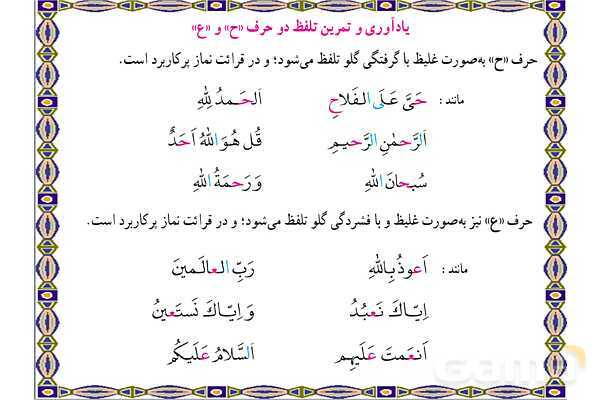 یادآوری و تمرین تلفظ دو حرف «ح» و «ع»
حرف «ح» به‌صورت غلیظ با گرفتگی گلو تلفظ می‌شود؛ و در قرائت نماز پرکاربرد است.
مانند : حَیَّ عَلَی الفَلاحِ اَلحَـمدُ لِلّٰهِ
اَلرَّحمٰنِ الرَّحیـمِ قُل هُوَ اللّٰهُ اَحَدٌ
سُبحانَ اللّٰهِ وَ رَحمَةُ اللّٰهِ
حرف «ع» نیز به‌صورت غلیظ و با فشردگی گلو تلفظ می‌شود؛ و در قرائت نماز پرکاربرد است.
مانند : اَعوذُ بِاللّٰهِ رَبِّ العالَمینَ
اِیّاكَ نَعبُدُ وَ اِیّاكَ نَستَعینُ
اَنعَمتَ عَلَیهِم اَلسَّلامُ عَلَیکُم
Gama